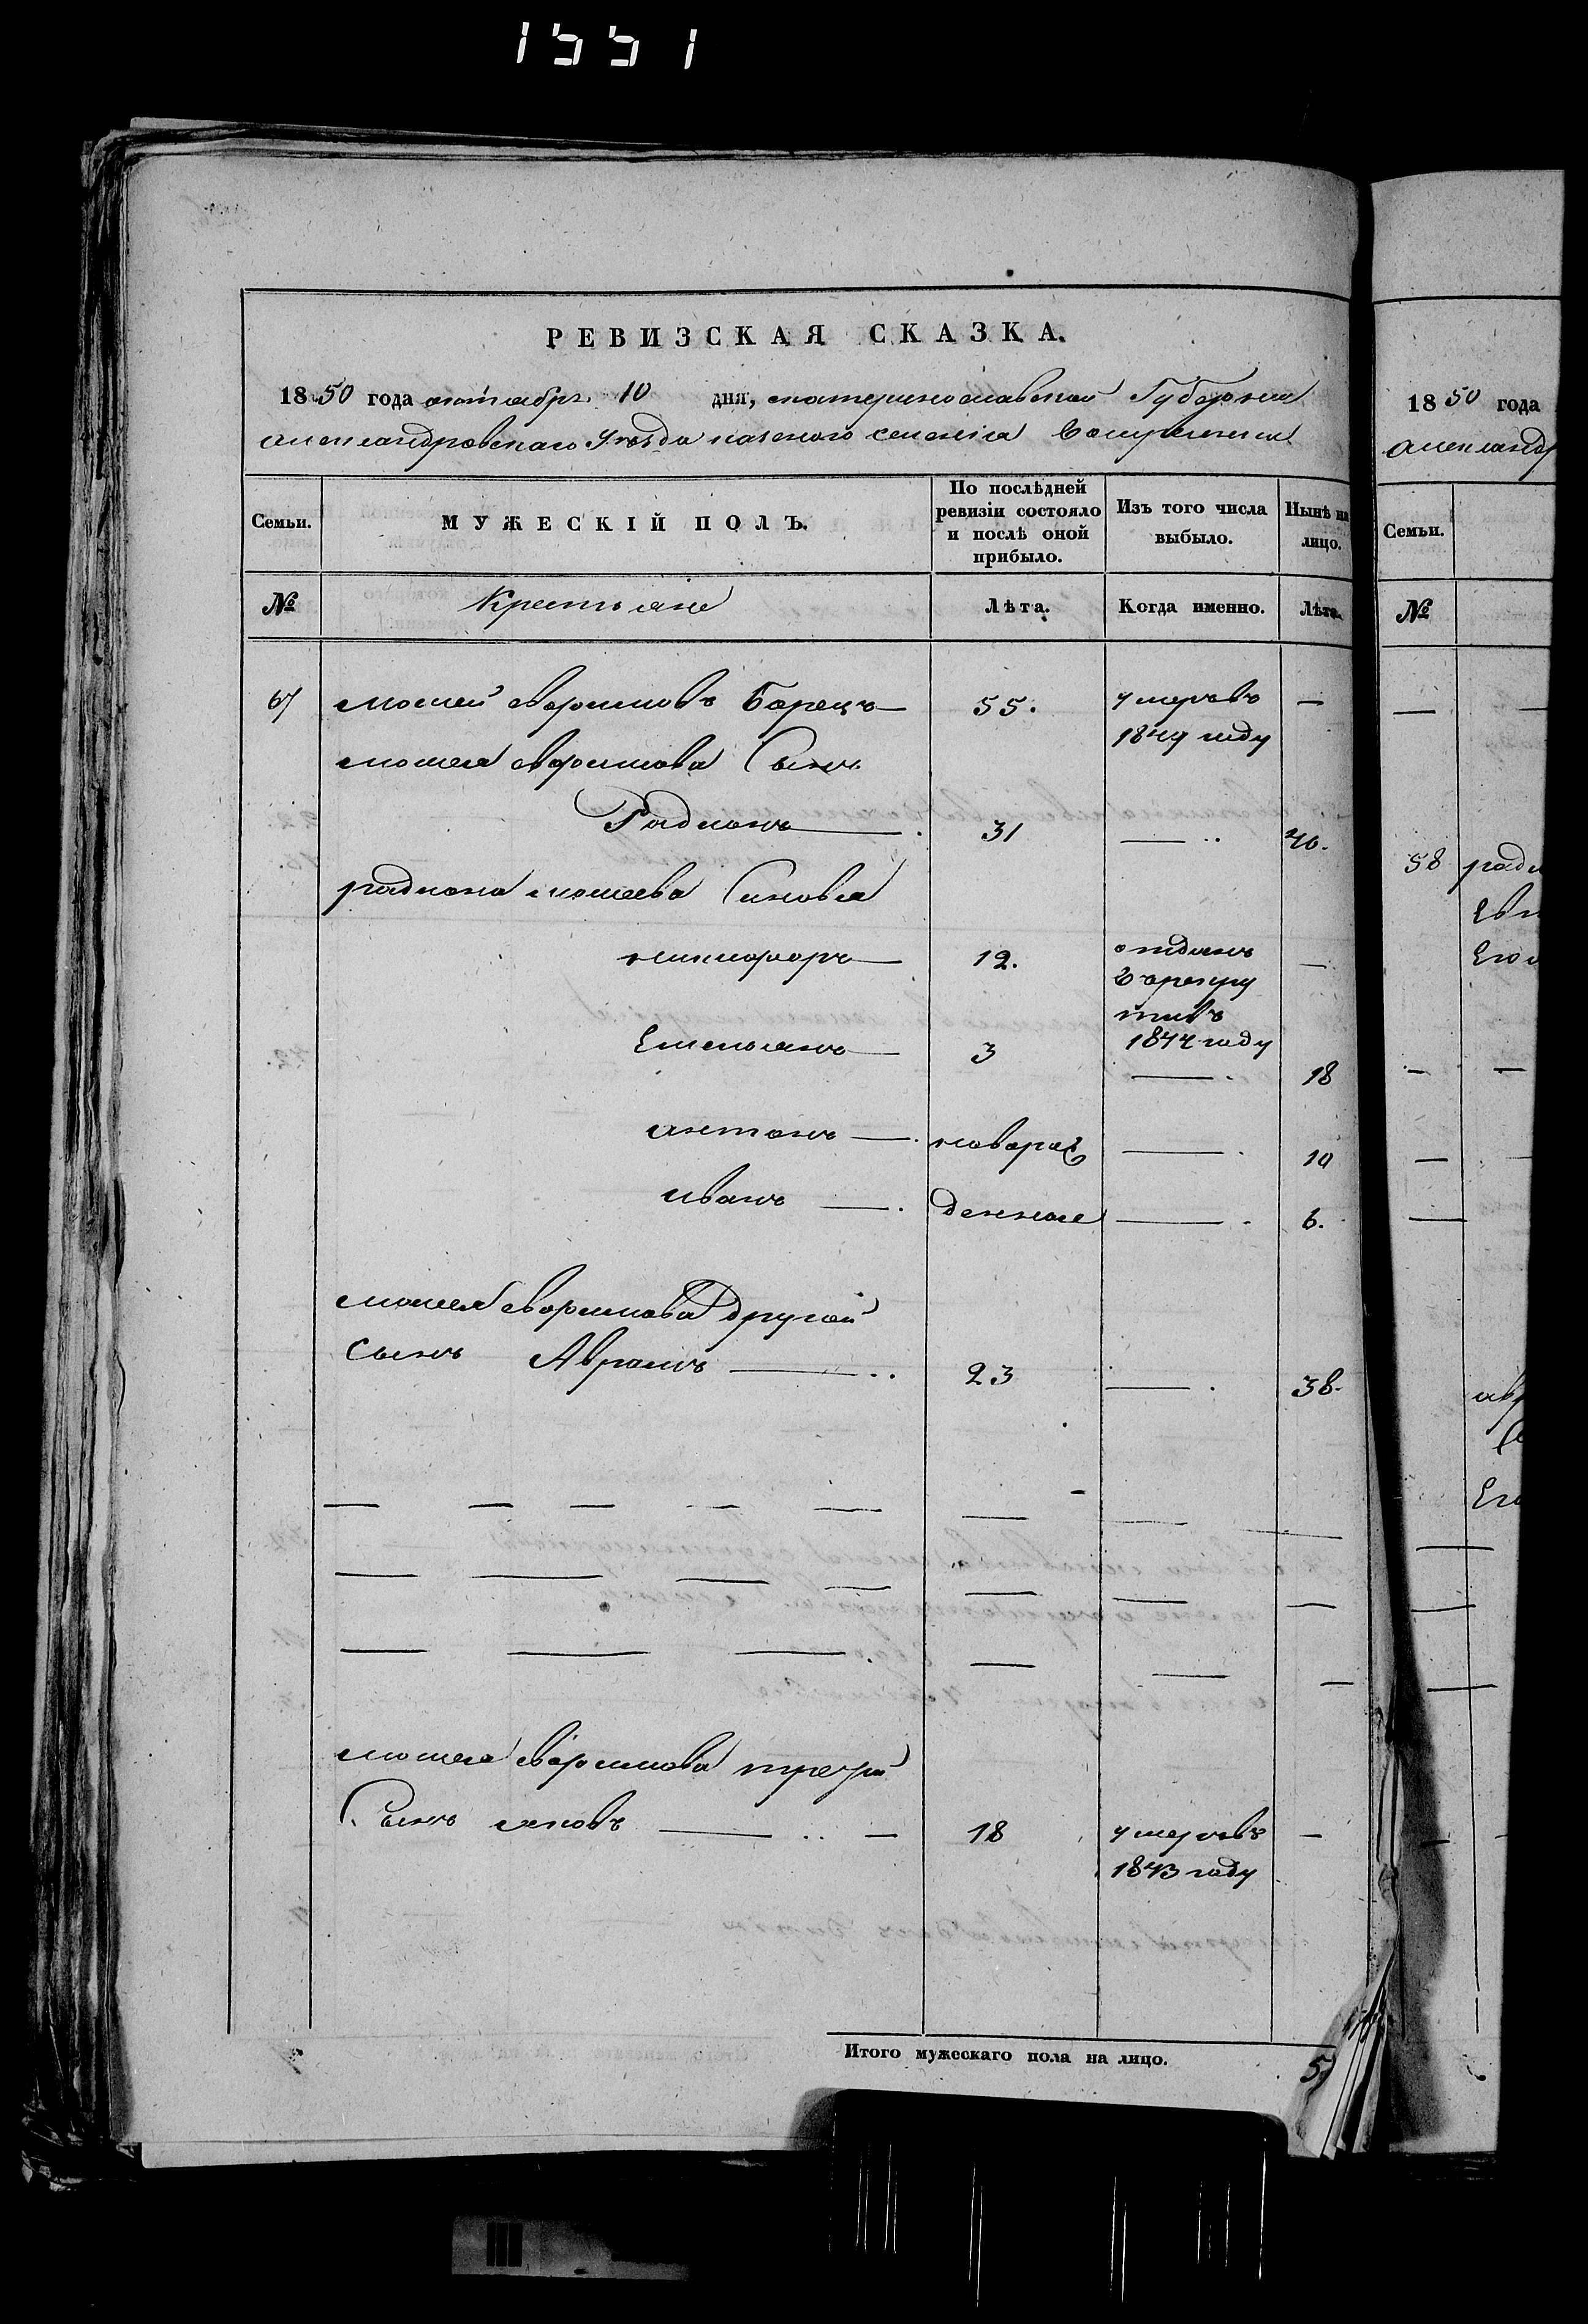 1551
РЕВИЗСКАЯ СКАЗКА.
1850 года октября 10 дня, екатеринославской Губернии
александровского уезда казеного селенія Воскресенки
Семьи.
МУЖЕСКІЙ ПОЛЪ.
По послѣдней ревизіи состояло и послѣ оной прибыло.
Изъ того числа выбыло.
Нынѣ на лицо.
№ Крестьяне Лѣта. Когда именно. Лѣта.
мосей Борецъ 55. умеръ въ —
1849 году
мосея Сынъ
Радионъ 31 — 46.
радиона мосеева Синовья
никифоръ 12. отданъ —
в рекру
ти въ
1844 году
Емельянъ 3 — 18
антонъ — новорож — 10
иванъ — денные — 6.
мосея другой
Сынъ Аврамъ — 23 — 38.
мосея третій
Сынъ яковъ — 18 умеръ въ —
1843 году
Итого мужескаго пола на лицо. 5
1850 года
александр
Семьи.
№
58 ради
Его
авр
Его